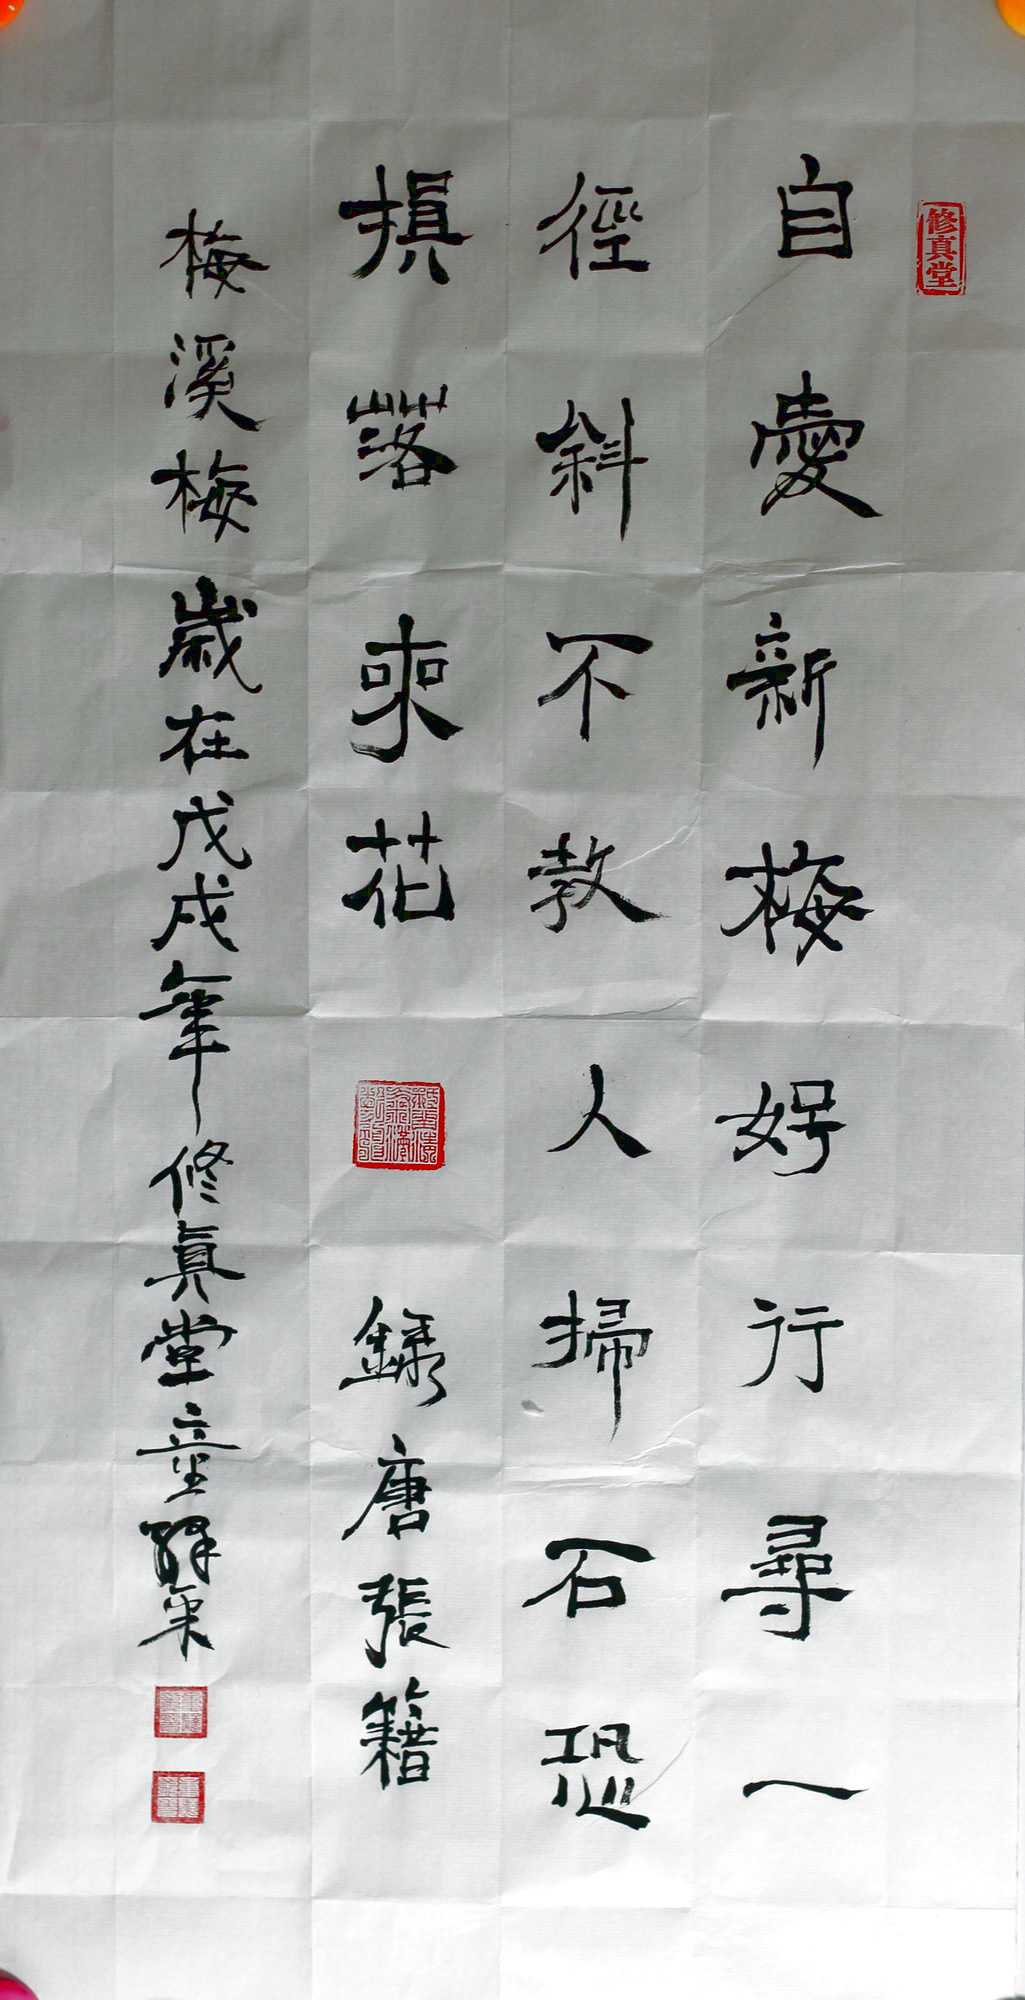 修真堂
自愛新梅好行尋一
徑斜不教人掃石恐
損落來花 錄唐張籍
梅溪梅歲在戊戌年修真堂童